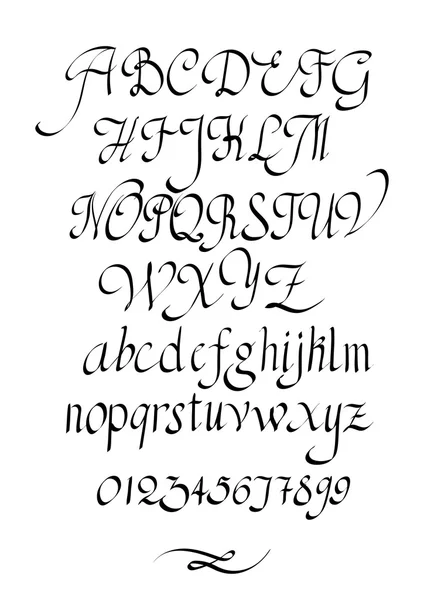 ABCDEFG
HIJKLM
NOPQRSTUV
WXYZ
abcdefghijklm
nopqrstuvwxyz
012345677899